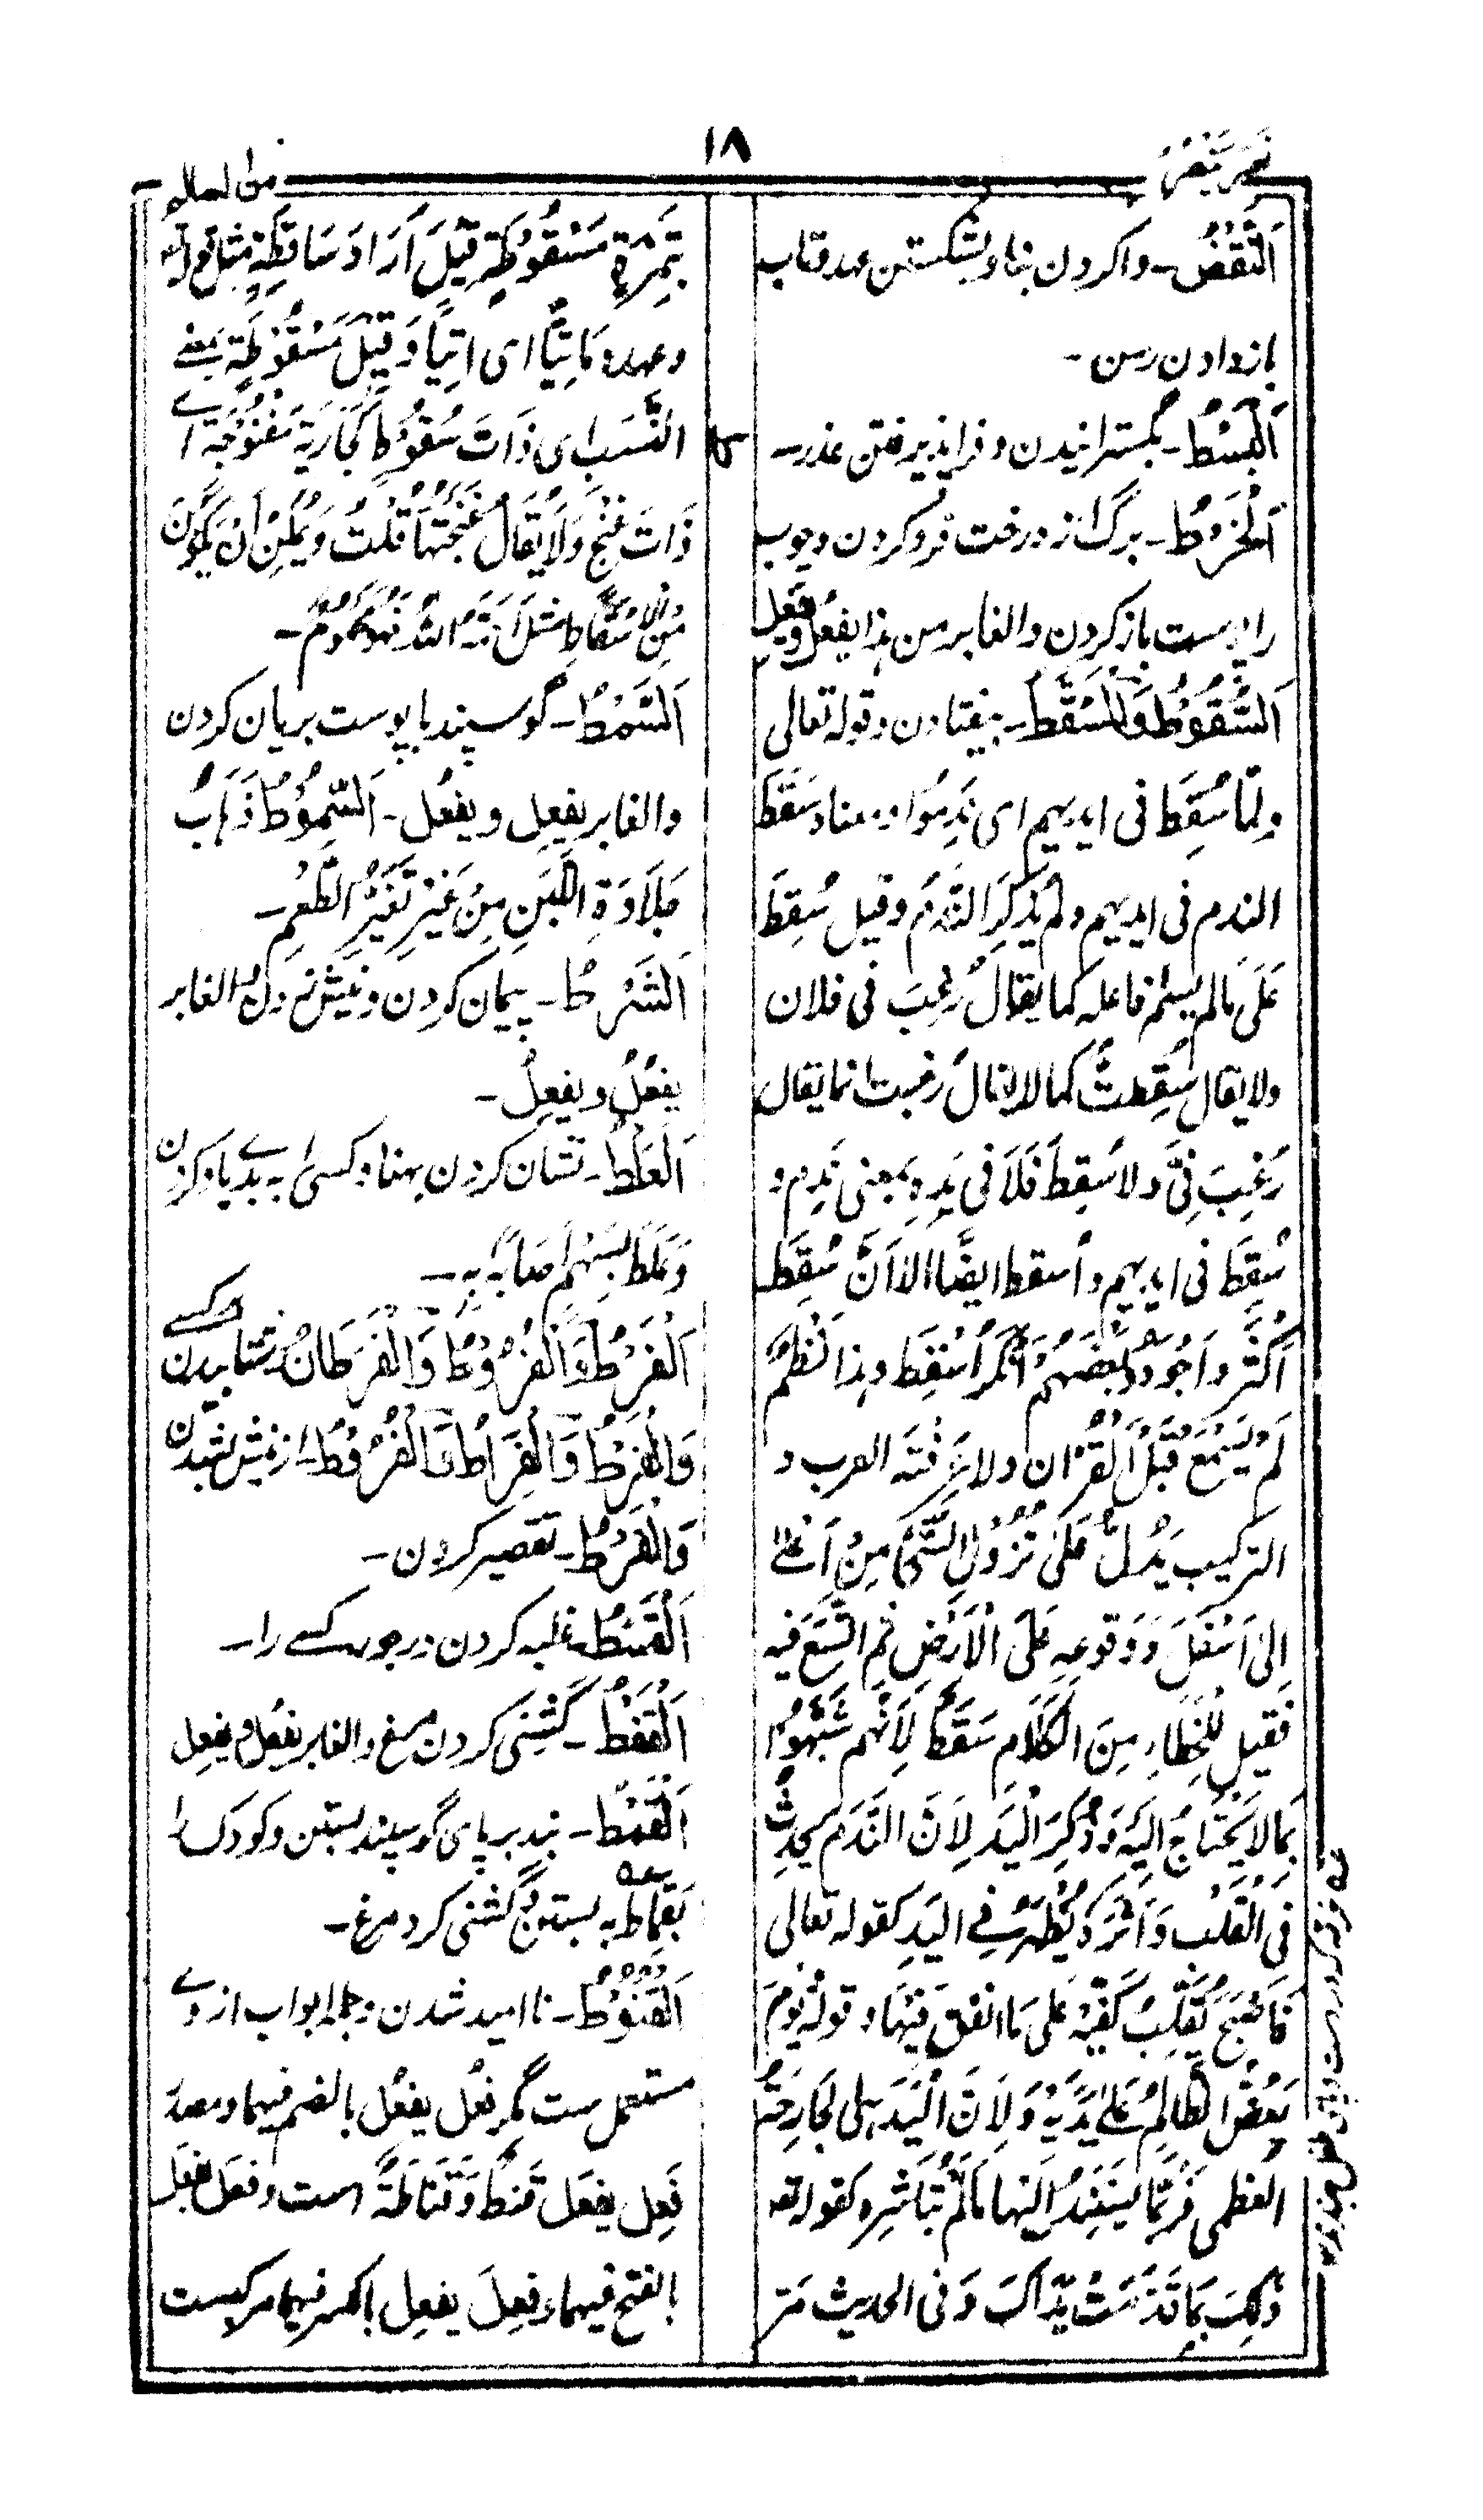 ١٨
نصر ينصر
من السالم
اَلنَّقْضُ۔ واکردن بنا و بشکستن عهد و تاب
باز دادن رسن۔
اَلْبَسْطُ۔ بگسترانیدن و فراپذیرفتن عذر۔
اَلْخَرْطُ۔ برگ از درخت فرو کردن و چوب
را پوست باز کردن والغابر من هذا یفعُل ویفعِل
اَلسُّقُوْطُ وَالْمَسْقَطُ۔ بیفتادن وقوله تعالى
ولمّا سُقِطَ فی ایدیهم ای نَدِمُوا ومعناه سَقَطَ
الندم فی ایدیهم ولم یُذْکَرِ النَّدَمُ وقیل سُقِطَ
عَلَى مالم یسمّ فاعله کما یقالُ رُغِبَ فی فلان
ولا یقال سُقِطتُ کما لا یقالُ رغبت انما یقال
رُغِبَ فِيَّ ولا سُقِطَ فلاَ فی یَدِهِ بمعنى نَدِم و
سُقِطَ فی ایدیهم وأُسقط ایضًا الا اَنَّ سُقِطَ
اَکْثَر واَجْوَدُ وبَعْضُهُمْ اُسْقِطَ وهذا نَظْمٌ
لَمْ یُسْمَعْ قَبْلَ الْقُرْانِ ولا عَرَفَتْه العرب و
الترکیب یَدُلُّ عَلَى نُزُوْلِ الشَّئِ مِنْ اَعْلىٰ
اِلىٰ اَسْفَلَ وَوقوعِهٖ عَلَى الْاَرْضِ ثم اتَّسَعَ فیه
فَقِیلَ لِلْخَطَاءِ مِنَ الْکَلَامِ سَقَطٌ لِاَنَّهم شَبَّهُوْا
بِمَا لَا یُحْتَاجُ اِلَیْهِ وَذُکِرَ الْیَدُ لِاَنَّ النَّدَمَ یَحْدُثُ
فی الْقَلْبِ وَاَثَرُهُ یَظْهَرُ فِی الیَدِ کقوله تعالى
فَاَصْبَحَ یُقَلِّبُ کَفَّیْهِ عَلَى مَا اَنْفَقَ فِیْهَا وقوله یَوْمَ
یَعَضُّ الظَّالِمُ عَلىٰ یَدَیْهِ وَلِاَنَّ الْیَدَ هی الْجَارِحَةُ
العظمى فَرُبَّمَا یُسْنَدُ اِلَیْها مَا لَمْ تُبَاشِرْه کقوله تعـ
ذٰلِکَ بِمَا قَدَّمَتْ یَدَاکَ وَفی الحدیث مَرَّ
بِتَمْرَةٍ مَسْقُوْطَةٍ قِیْلَ اَرَادَ سَاقِطَةٍ مثل قوله
وعده مَاتِیًّا ای اٰتِیًا وَقِیْلَ مَسْقُوْطَةٍ بمعنے
النَّسَب ای ذَاتَ سُقُوْطٍ کَجَارِیَةٍ مَغْنُوْجَةٍ اے
ذَاتَ غُنْجٍ وَلَا یُقَالُ غَنَجْتُهَا قُلْتُ وَیُمْکِنُ اَنْ یَّکُوْنَ
مِنَ الْاِسْقَاطِ مثل اَحَمَّهُ اللّٰهُ فَهُوَ مَحْمُوْمٌ۔
اَلسَّمْطُ۔ گوسپند با پوست بریان کردن
والغابر یفعِل ویفعُل۔ اَلسُّمُوْطُ ذَهَابُ
حَلَاوَةِ اللَّبَنِ مِنْ غَیْرِ تَغَیُّرِ الطَّعْمِ۔
اَلشَّرْطُ۔ پیمان کردن و نیش زدن والغابر
یفعُلُ ویفعِلُ۔
اَلْعَلْطُ۔ نشان کردن بپهنا و کسی را به بدے یاد کردن
وَعَلَطَ بِسَهْمٍ اَصَابَه بِهٖ۔
اَلْفَرْطُ وَالْفُرُوْطُ وَالْفَرَطَانُ۔ شتابیدن بر کسے
وَالْفَرْطُ وَالْفِرَاطُ وَالْفُرُوْطُ۔ از پیش شدن
وَالْفَرْطُ۔ تقصیر کردن۔
اَلْقَسْطُ۔ غلبه کردن در جور کسے را۔
اَلْقَفْطُ۔ گشنی کردن مرغ والغابر یفعُل ویفعِل
اَلْقَمْطُ۔ بند بر پای گوسپند بستن و کودک را
بقماطه بستن و گشنی کردن مرغ۔
اَلْقُنُوْطُ۔ ناامید شدن وجمله ابواب ازوے
مستعمل ست مگر فعُل یفعُل بالضم فیهما ومصدر
فَعِل یفعَل قَنَطًا وَقَنَاطَةً است وفعَل یفعَل
بالفتح فیهما وفعِل یفعِل بالکسر فیهما مرکبست